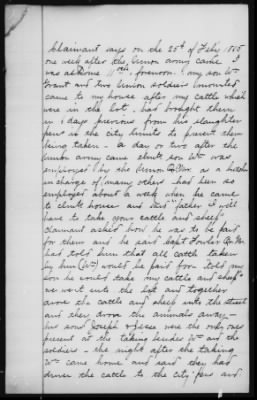 Claimant says on the 25th of Feby 1865
one week after the Union army came I
was at home 11 forenoon. my son Wm
Grant and two Union soldiers mounted
came to my house after my cattle which
were in the lot. had brought them
in days previous from his slaughter
pen in the city limits to prevent them
being taken - a day or two after the
Union army came clmts son Wm was
employed by the Union as a butcher
in charge of many others - had been so
employed about a week when he came
to clmts house and said "father I will
have to take your cattle and sheep"
claimant asked how he was to be paid
for them and he said Capt Fowler
had told him that all cattle taken
by him (Wm) would be paid for - told my
son he could take my cattle and sheep"
we went into the lot and together
drove the cattle and sheep into the street
and they drove the animals away -
his sons Joseph & Jesse were the only ones
present at the taking besides Wm and the
soldiers - the night after the taking
Wm came home and said they had
driven the cattle to the city pen and